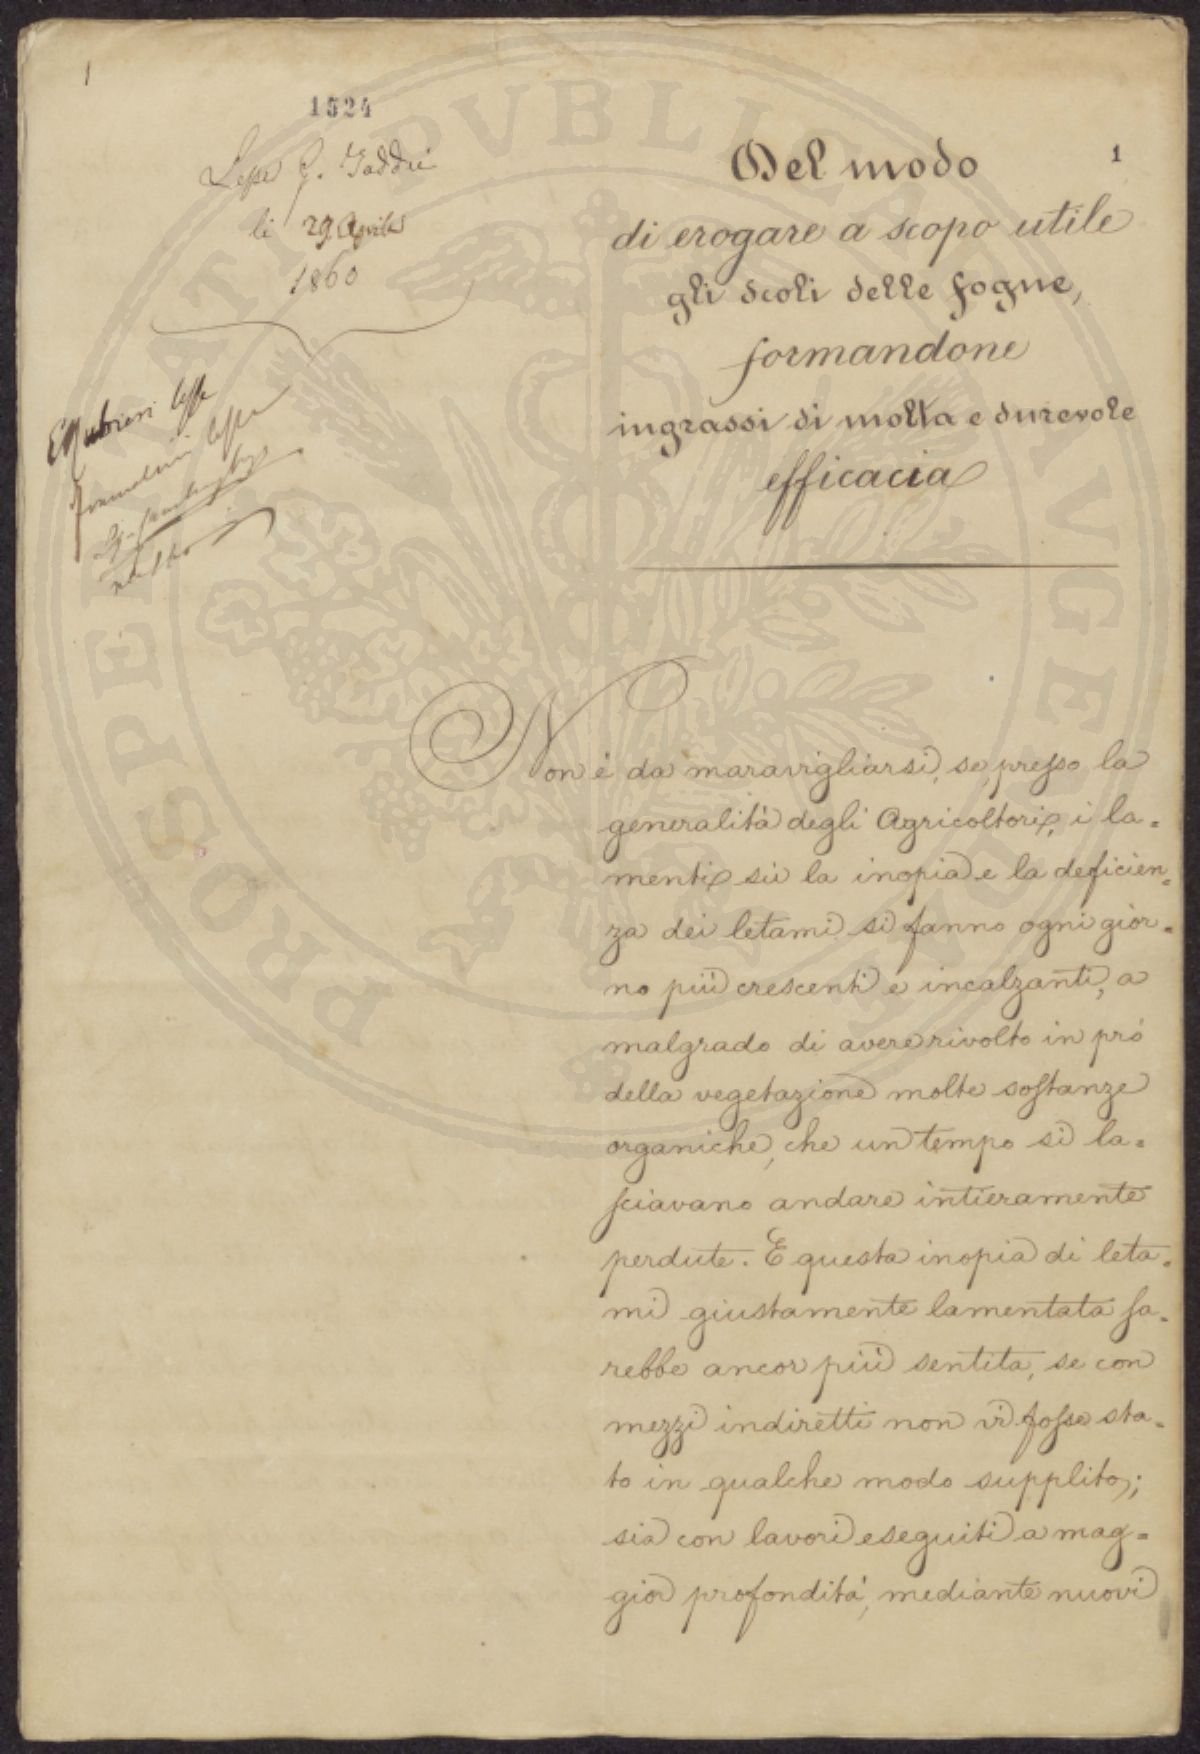 1
1524
Lesse G. Taddei
li 29 Aprile
1860
E Rubieri lesse
lesse
1
Del modo
di erogare a scopo utile
gli scoli delle fogne,
formandone
ingrassi di molta e durevole
efficacia
Non è da maravigliarsi, se presso la
generalità degli Agricoltori, i la=
menti sù la inopia e la deficien=
za dei letami si fanno ogni gior=
no più crescenti e incalzanti, a
malgrado di avere rivolto in prò
della vegetazione molte sostanze
organiche, che un tempo si la=
sciavano andare intieramente
perdute. E questa inopia di leta=
mi giustamente lamentata sa=
rebbe ancor più sentita, se con
mezzi indiretti non vi fosse sta=
to in qualche modo supplito;
sia con lavori eseguiti a mag=
gior profondità, mediante nuovi
PROSPERITATI PVBLICAE AVGENDAE